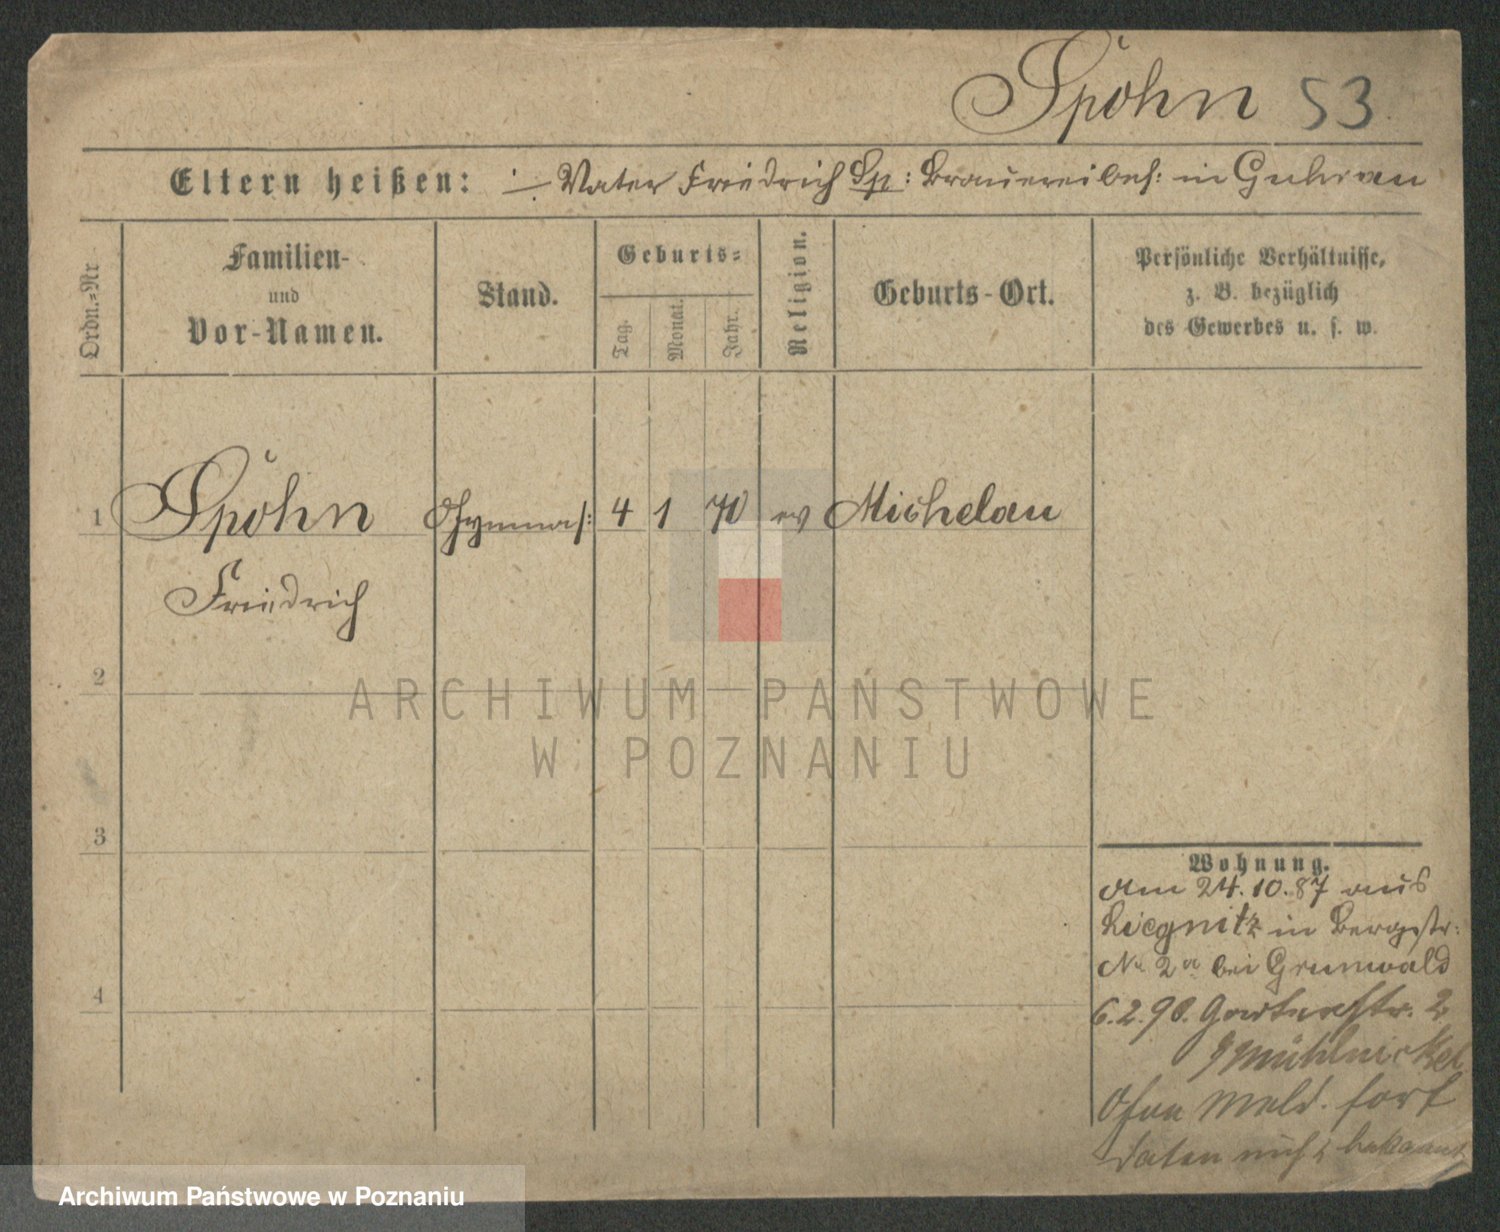 Spohn 53
Eltern heißen: :— Vater Friedrich Sp: Brauereibes: in Guhrau
Ordn.=Nr
Familien-
und
Vor-Namen.
Stand.
Geburts=
Tag.
Monat.
Jahr.
Religion.
Geburts-Ort.
Persönliche Verhältnisse,
z. B. bezüglich
des Gewerbes u. s. w.
1 Spohn Gymnas: 4 1 70 ev Michelau
Friedrich
2
3
4
Wohnung.
Am 24.10.87 aus
Liegnitz in Bergstr:
No 2a bei Grunwald
6.2.90. Gartenstr. 2
Mühlnickel
Ohne Meld. fort
Daten nicht bekannt
ARCHIWUM PAŃSTWOWE
W POZNANIU
Archiwum Państwowe w Poznaniu